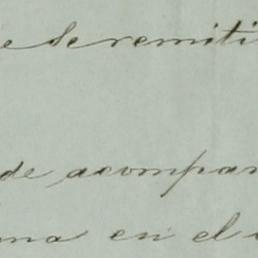 e se remiti
de acompa
ma en el